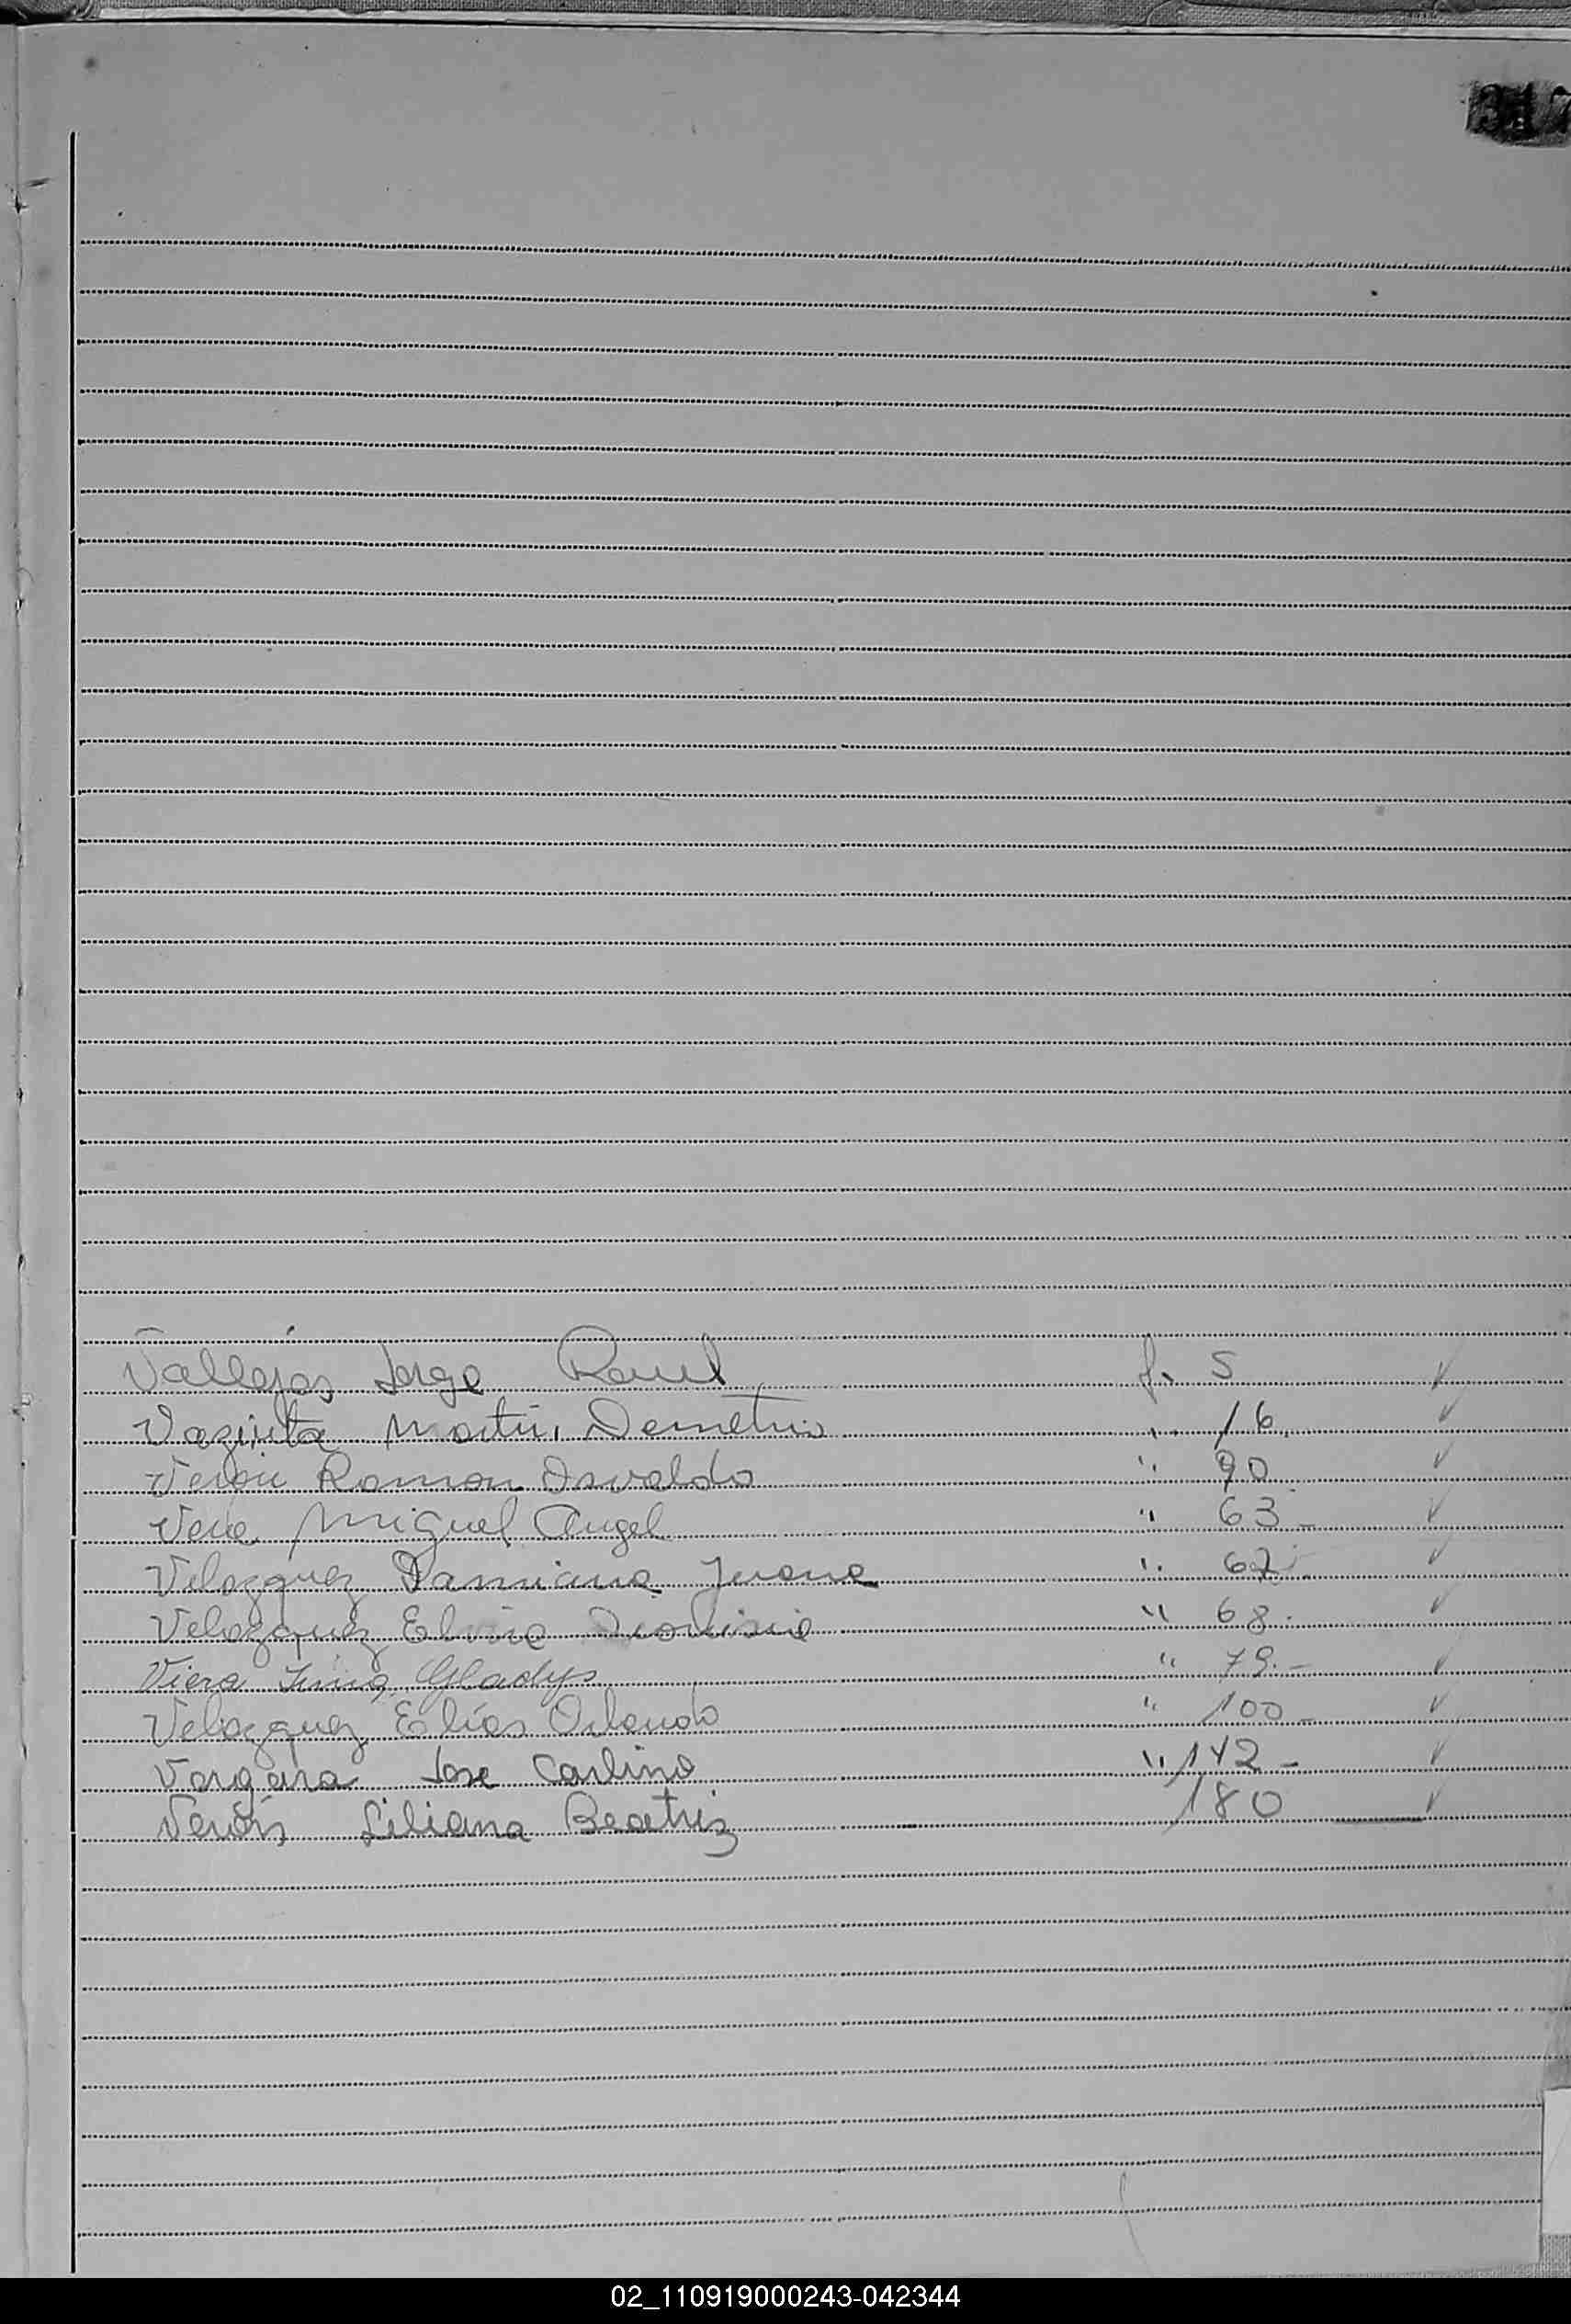 317
Vallejos Jorge Raul f. 5
Martin Demetrio " 16.
Veron Ramon Osvaldo " 90
Vera Miguel Angel " 63 -
Velazquez Damiana Juana " 67
Velazquez Elvira Dionisia " 68.
Viera Irma Gladys " 79. -
Velazquez Elías Orlando " 100 -
Vergara Jose Carlino " 142 -
Verón Liliana Beatriz 180
02_110919000243-042344